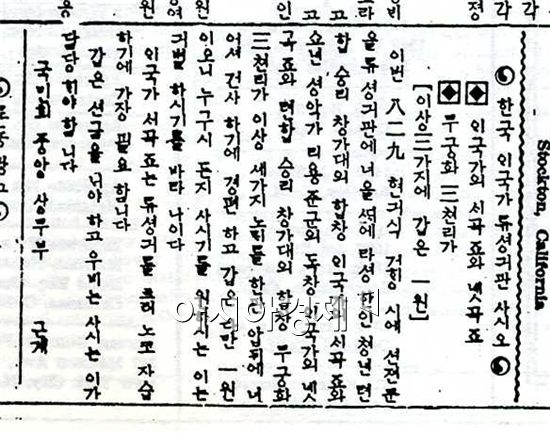 Stockton, California
한국 ᄋᆡ국가 류셩긔판 사시오
ᄋᆡ국가의 시곡죠와 녯곡죠
무궁화 三쳔리가
[이상 三가지에 갑은 一원]
이번 八二九 현긔식 거ᄒᆡᆼ 시에 션젼문
을 류셩긔판에 너을 ᄯᅢ에 라셩 한인 쳥년 련
합 승리 챵가대의 합챵 ᄋᆡ국가의 시곡죠와
쇼년 셩악가 리용쥰군의 독챵 ᄋᆡ국가의 녯
곡죠와 련합 승리 챵가대의 합챵 무궁화
三쳔리가 이상 세가지 노ᄅᆡ를 한판 압뒤에 너
어셔 건사 하기에 경편 하고 갑은 다만 一원
이오니 누구시 든지 사시기를 원하시는 이는
긔별 하시기를 바라 나이다
ᄋᆡ국가 시곡죠는 류셩긔를 트러 노코 자습
하기에 가장 필요 합니다
갑은 션금을 너야 하고 우비는 사시는 이가
담당 하여야 합니다
국민회 중앙 상무부